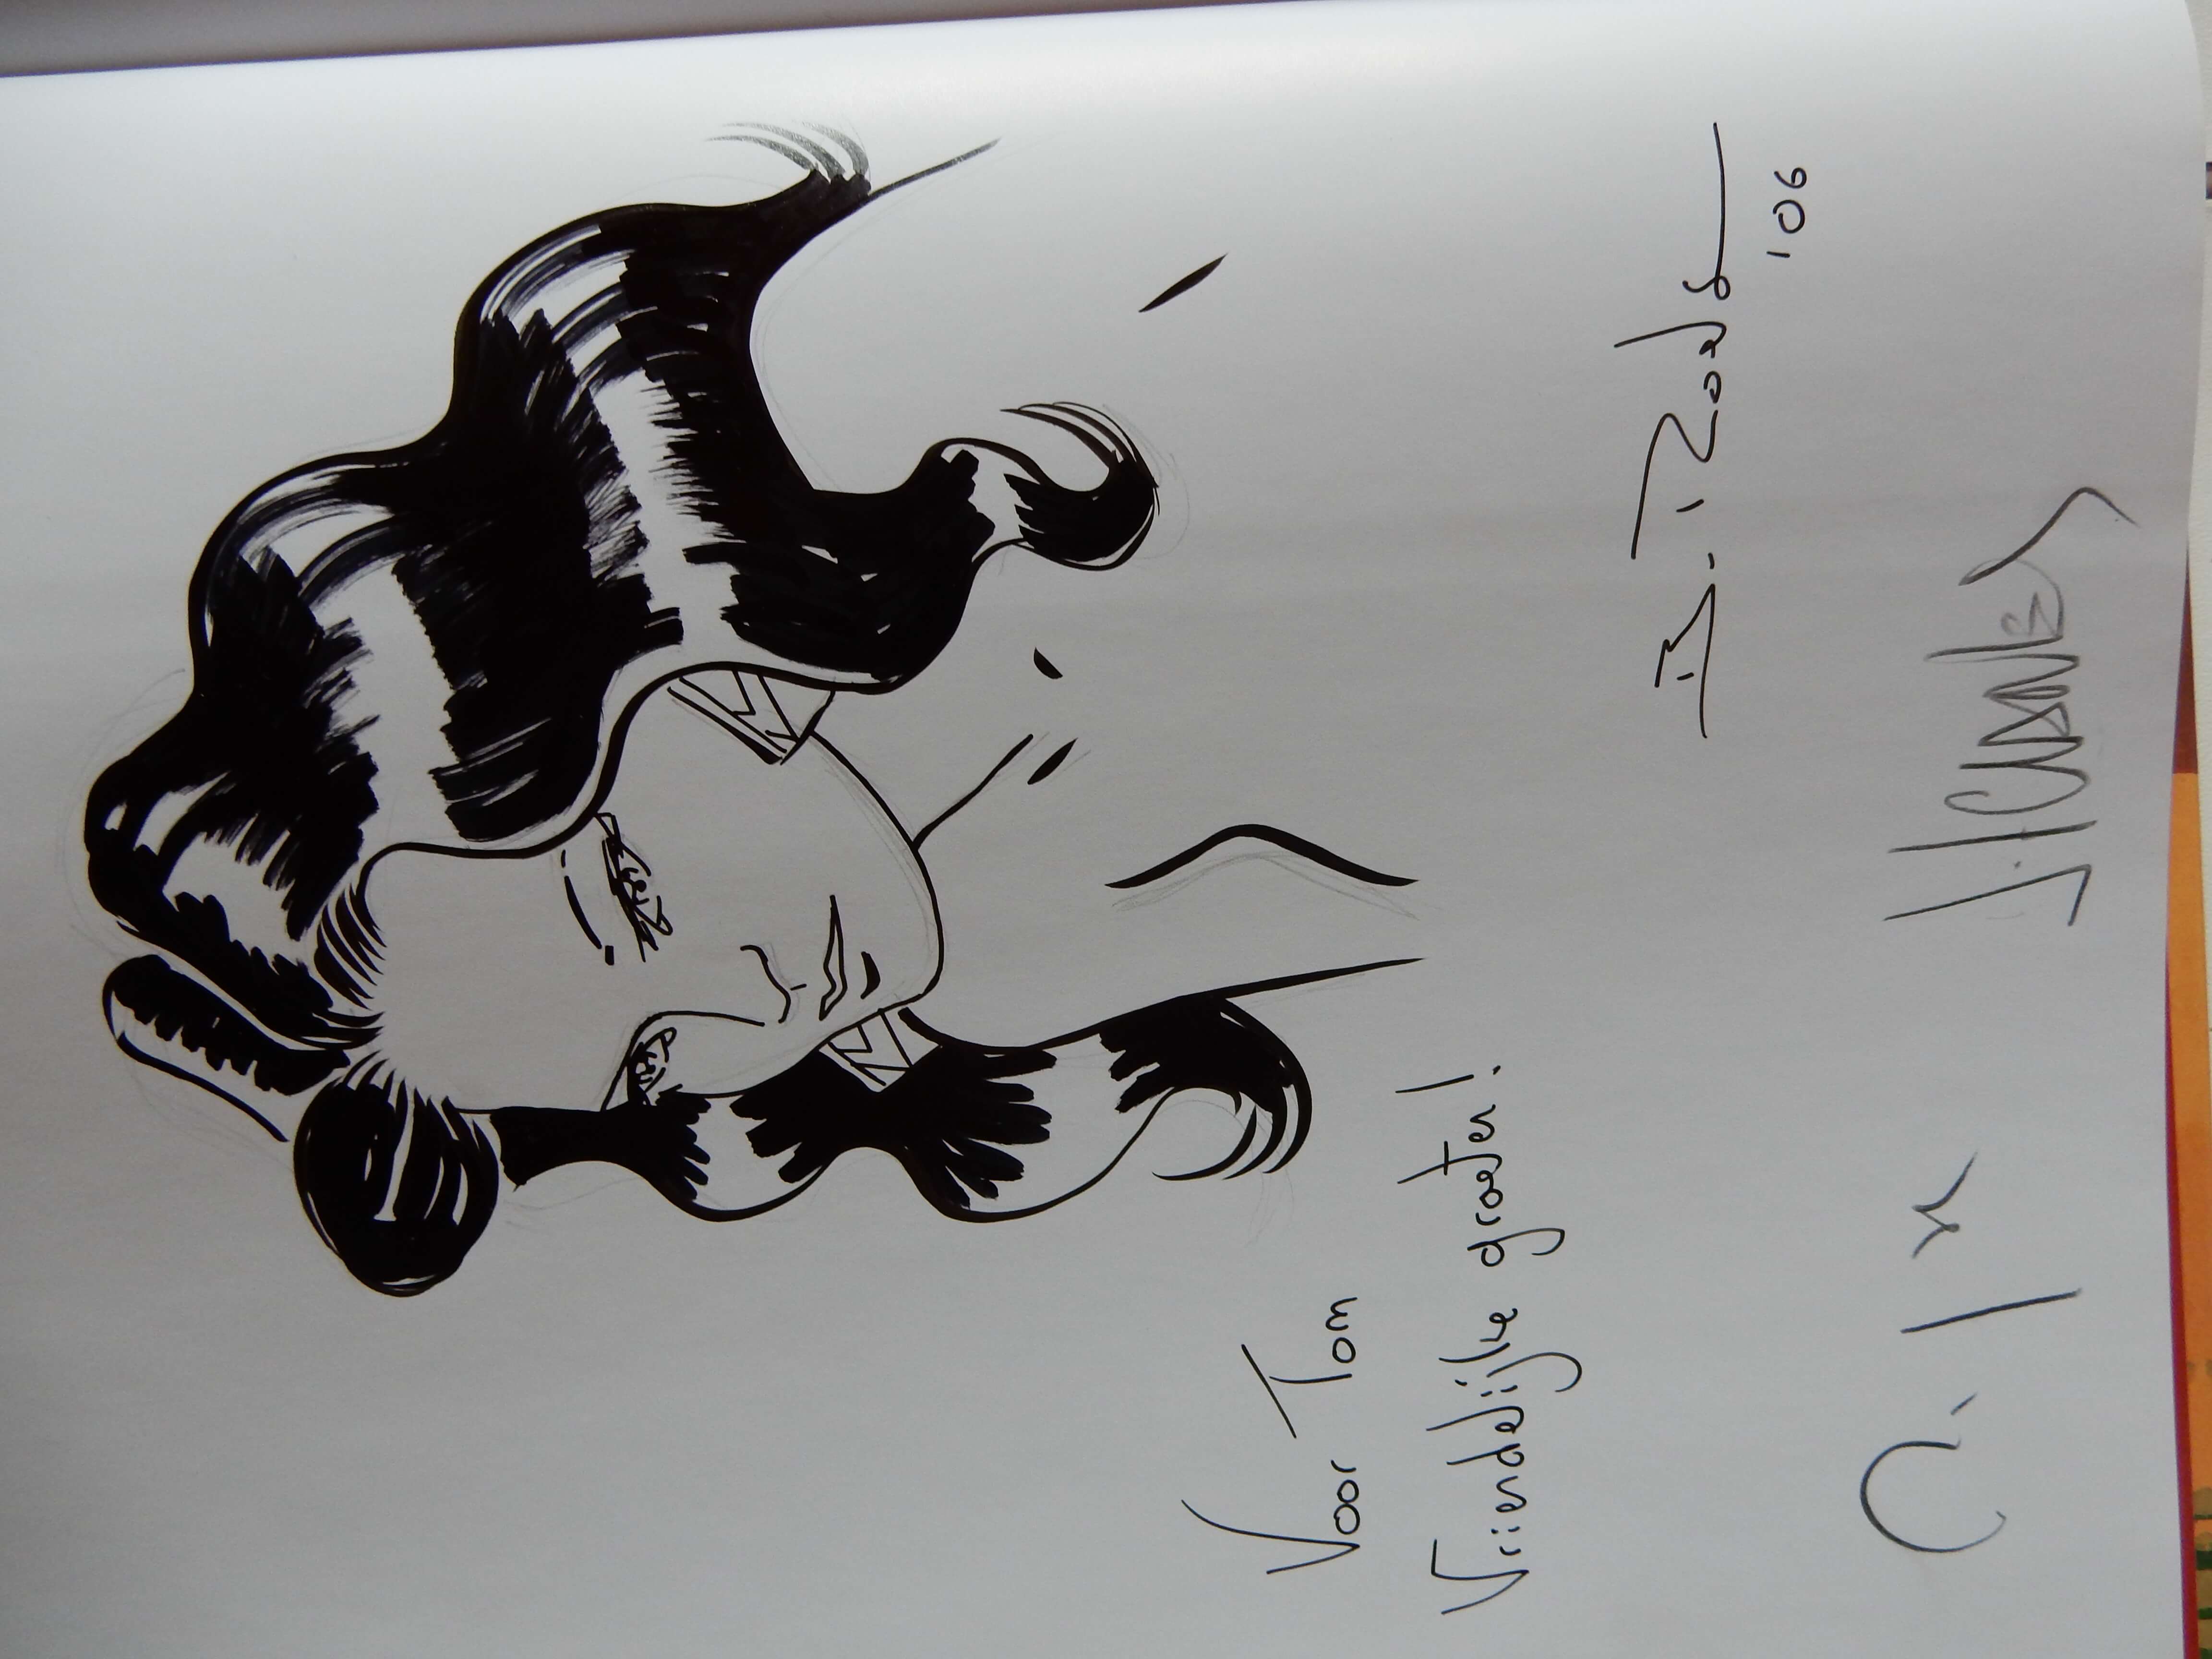 Voor Tom
Vriendelijke groeten!
B. Roels
'06